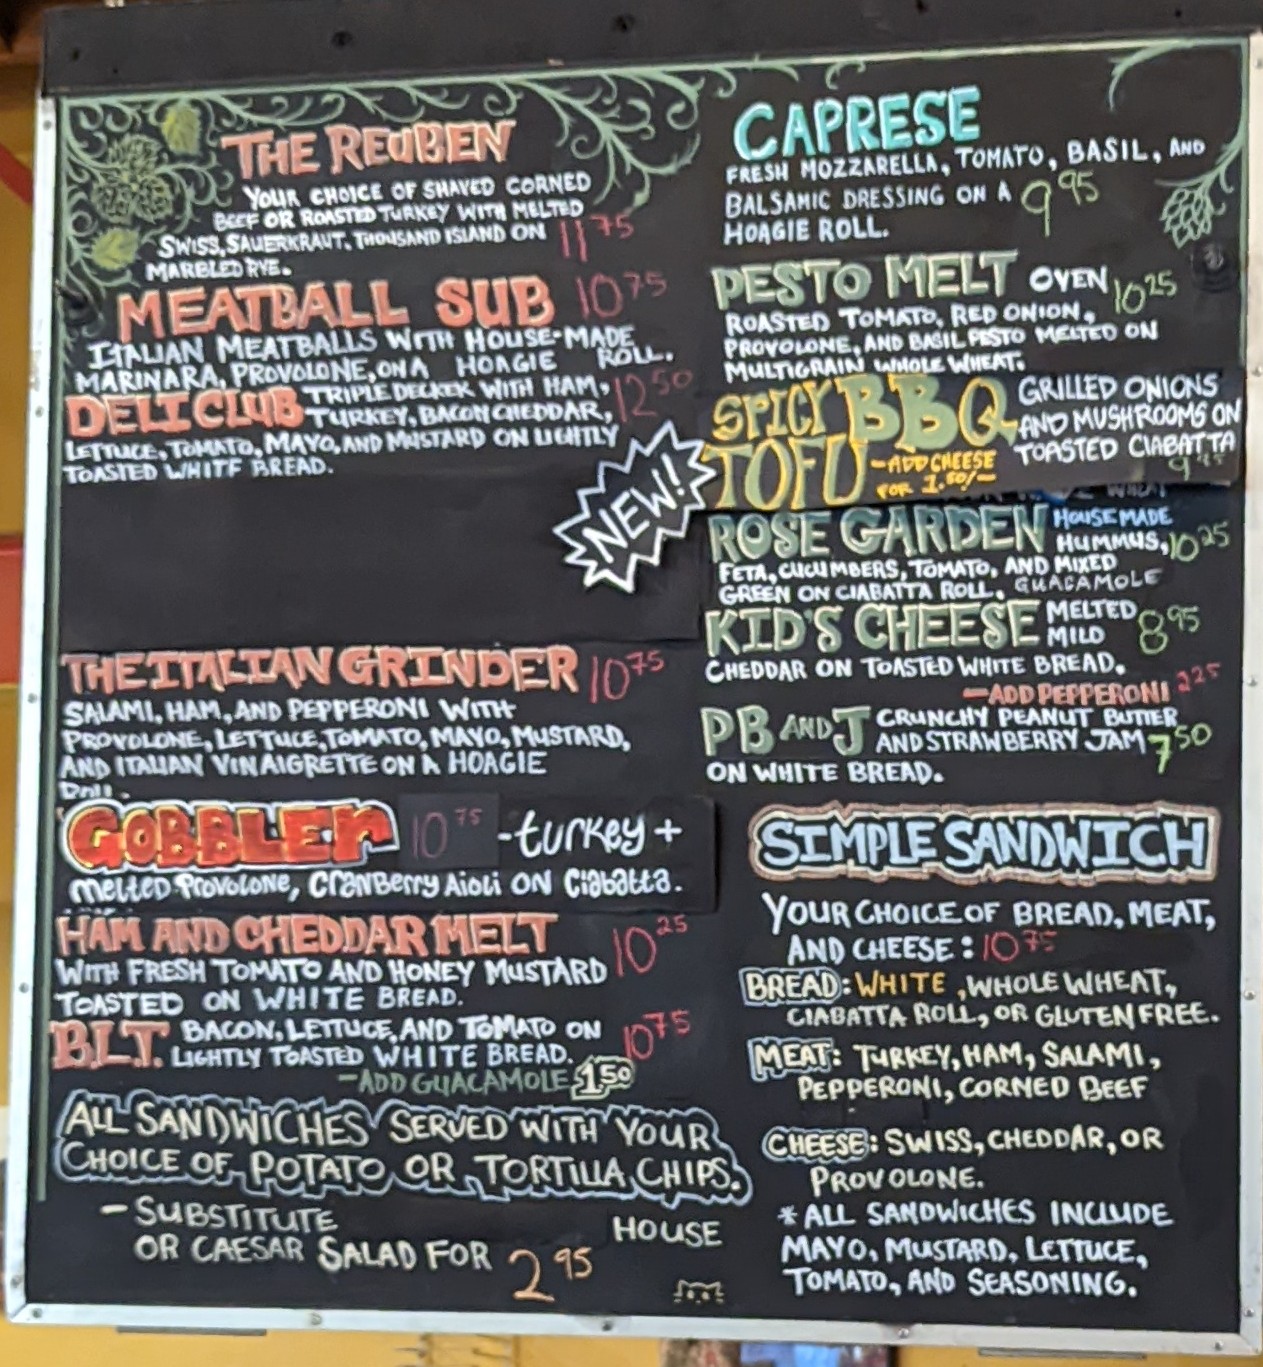 THE REUBEN
YOUR CHOICE OF SHAVED CORNED
BEEF OR ROASTED TURKEY WITH MELTED
SWISS, SAUERKRAUT, THOUSAND ISLAND ON 11 75
MARBLED RYE.
MEATBALL SUB 10 75
ITALIAN MEATBALLS WITH HOUSE-MADE
MARINARA, PROVOLONE, ON A HOAGIE ROLL.
DELI CLUB TRIPLE DECKER WITH HAM, 12 50
TURKEY, BACON CHEDDAR,
LETTUCE, TOMATO, MAYO, AND MUSTARD ON LIGHTLY
TOASTED WHITE BREAD.
THE ITALIAN GRINDER 10 75
SALAMI, HAM, AND PEPPERONI WITH
PROVOLONE, LETTUCE, TOMATO, MAYO, MUSTARD,
AND ITALIAN VINAIGRETTE ON A HOAGIE
GOBBLER 10 75 -turkey +
melted Provolone, Cranberry Aioli ON Ciabatta.
HAM AND CHEDDAR MELT 10 25
WITH FRESH TOMATO AND HONEY MUSTARD
TOASTED ON WHITE BREAD.
BLT. BACON, LETTUCE, AND TOMATO ON 10 75
LIGHTLY TOASTED WHITE BREAD.
-ADD GUACAMOLE 1.50
ALL SANDWICHES SERVED WITH YOUR
CHOICE OF POTATO OR TORTILLA CHIPS.
- SUBSTITUTE HOUSE
OR CAESAR SALAD FOR 2 95
CAPRESE
FRESH MOZZARELLA, TOMATO, BASIL, AND
BALSAMIC DRESSING ON A 9 95
HOAGIE ROLL.
PESTO MELT OVEN 10 25
ROASTED TOMATO, RED ONION,
PROVOLONE, AND BASIL PESTO MELTED ON
MULTIGRAIN WHOLE WHEAT.
NEW!
SPICY BBQ GRILLED ONIONS
TOFU AND MUSHROOMS ON
-ADD CHEESE TOASTED CIABATTA
FOR 1.50/-
WHEAT
ROSE GARDEN HOUSE MADE
HUMMUS, 10 25
FETA, CUCUMBERS, TOMATO, AND MIXED
GREEN ON CIABATTA ROLL. GUACAMOLE
KID'S CHEESE MELTED 8 95
MILD
CHEDDAR ON TOASTED WHITE BREAD.
-ADD PEPPERONI 2 25
PB AND J CRUNCHY PEANUT BUTTER
AND STRAWBERRY JAM 7 50
ON WHITE BREAD.
SIMPLE SANDWICH
YOUR CHOICE OF BREAD, MEAT,
AND CHEESE: 10 75
BREAD: WHITE, WHOLE WHEAT,
CIABATTA ROLL, OR GLUTEN FREE.
MEAT: TURKEY, HAM, SALAMI,
PEPPERONI, CORNED BEEF
CHEESE: SWISS, CHEDDAR, OR
PROVOLONE.
*ALL SANDWICHES INCLUDE
MAYO, MUSTARD, LETTUCE,
TOMATO, AND SEASONING.